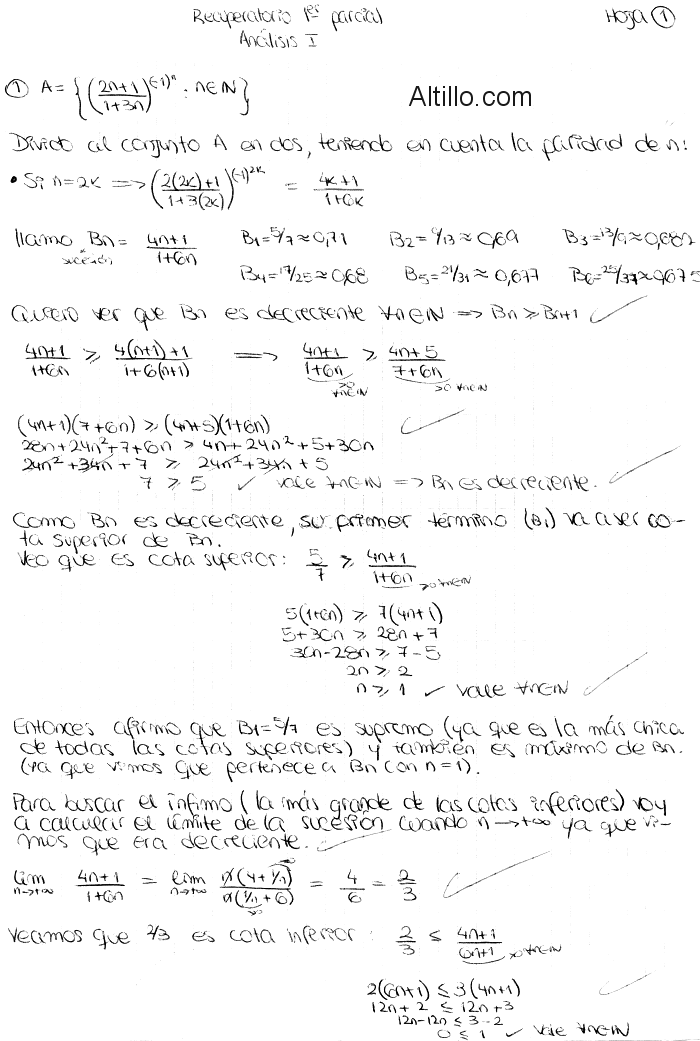 Recuperatorio 1er parcial
Hoja ①
Análisis I
① A = { ((2n+1)/(1+3n))^(-1)^n : n∈ℕ }
Altillo.com
Divido al conjunto A en dos, teniendo en cuenta la paridad de n:
• Si n=2k ⟹ ((2(2k)+1)/(1+3(2k)))^(-1)^2k = (4k+1)/(1+6k)
llamo Bn = (4n+1)/(1+6n) B1=5/7≈0,71 B2=9/13≈0,69 B3=13/19≈0,682
sucesión
B4=17/25≈0,68 B5=21/31≈0,677 B6=25/37≈0,675
Quiero ver que Bn es decreciente ∀n∈ℕ ⟹ Bn ≥ Bn+1 ✓
(4n+1)/(1+6n) ≥ (4(n+1)+1)/(1+6(n+1)) ⟹ (4n+1)/(1+6n) ≥ (4n+5)/(7+6n)
>0 ∀n∈ℕ >0 ∀n∈ℕ
(4n+1)(7+6n) ≥ (4n+5)(1+6n) ✓
28n+24n²+7+6n ≥ 4n+24n²+5+30n
24n²+34n+7 ≥ 24n²+34n+5
7 ≥ 5 ✓ vale ∀n∈ℕ ⟹ Bn es decreciente. ✓
Como Bn es decreciente, su primer término (B1) va a ser co-
ta superior de Bn.
Veo que es cota superior: 5/7 ≥ (4n+1)/(1+6n) >0 ∀n∈ℕ
5(1+6n) ≥ 7(4n+1)
5+30n ≥ 28n+7
30n-28n ≥ 7-5
2n ≥ 2
n ≥ 1 ✓ vale ∀n∈ℕ ✓
Entonces afirmo que B1=5/7 es supremo (ya que es la más chica
de todas las cotas superiores) y también es máximo de Bn.
(ya que vimos que pertenece a Bn con n=1).
Para buscar el ínfimo (la más grande de las cotas inferiores) voy
a calcular el límite de la sucesión cuando n→+∞ ya que vi-
mos que era decreciente. ✓
lim n→+∞ (4n+1)/(1+6n) = lim n→+∞ n(4+1/n)/n(1/n+6) = 4/6 = 2/3 ✓
Veamos que 2/3 es cota inferior: 2/3 ≤ (4n+1)/(6n+1) >0 ∀n∈ℕ
2(6n+1) ≤ 3(4n+1) ✓
12n+2 ≤ 12n+3
12n-12n ≤ 3-2
0 ≤ 1 ✓ vale ∀n∈ℕ